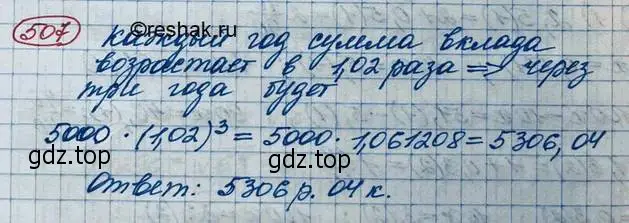 507
©reshak.ru
каждый год сумма вклада
возрастает в 1,02 раза => через
три года будет
5000 · (1,02)³ = 5000 · 1,061208 = 5306,04
gdz.top gdz.top gdz.top
Ответ: 5306 р. 04 к.